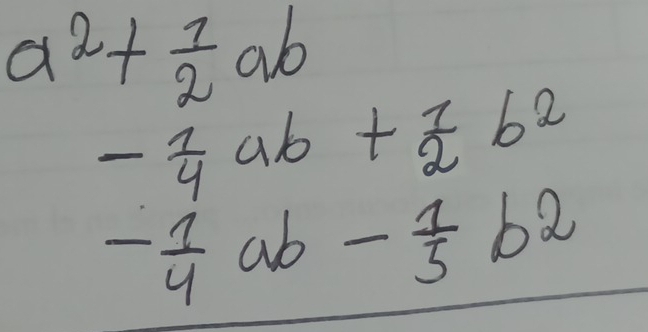 a² + 1/2 ab
- 1/4 ab + 1/2 b²
- 1/4 ab - 1/5 b²